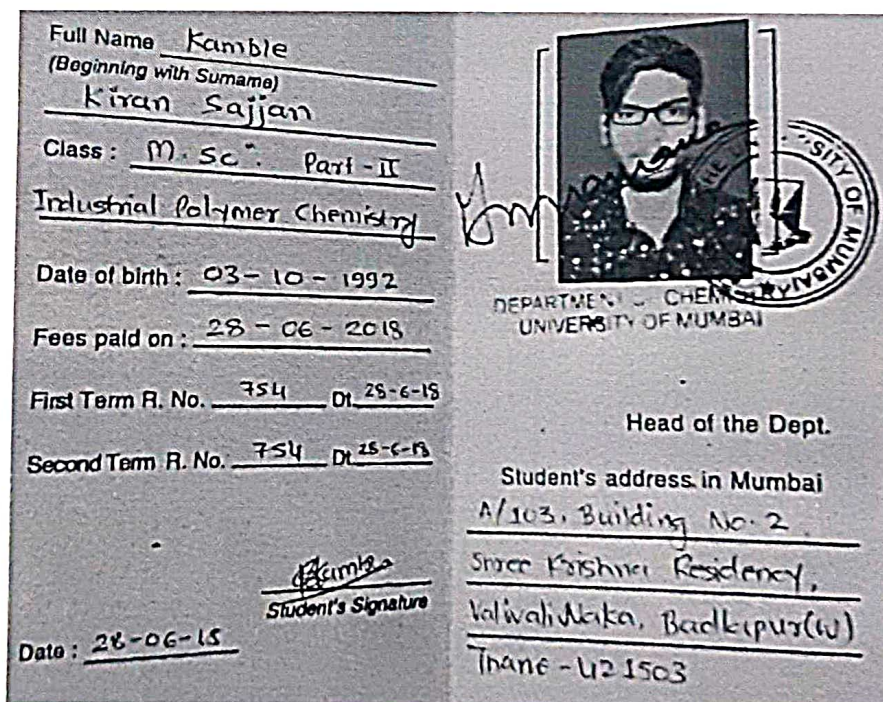 Full Name Kamble
(Beginning with Surname)
Kiran Sajjan
Class : M. Sc. Part - II
Industrial Polymer Chemistry
Date of birth : 03 - 10 - 1992
Fees paid on : 28 - 06 - 2018
First Term R. No. 754 Dt. 28-6-18
Second Term R. No. 754 Dt. 28-6-18
Kamble
Student's Signature
Date : 28-06-18
SITY OF MUMBAI
DEPARTMENT CHEMISTRY
UNIVERSITY OF MUMBAI
Head of the Dept.
Student's address in Mumbai
A/103, Building No. 2
Shree Krishna Residency,
Valivali Naka, Badlapur (W)
Thane - 421503